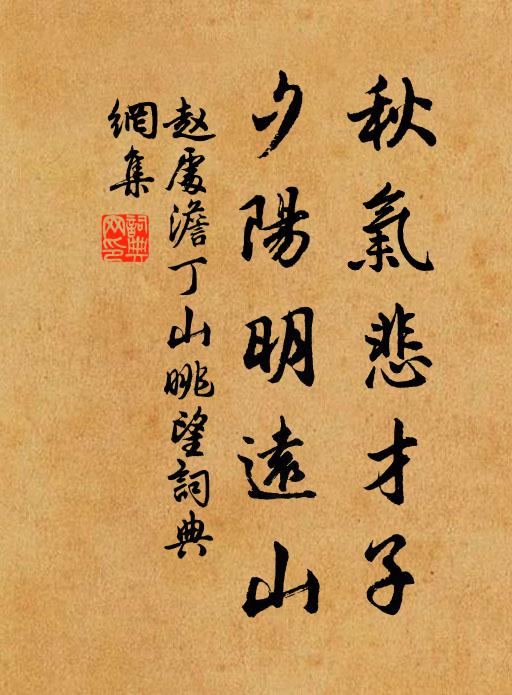 秋氣悲才子
夕陽明遠山
赵處澹丁山眺望詞典
網集
詞典
网印